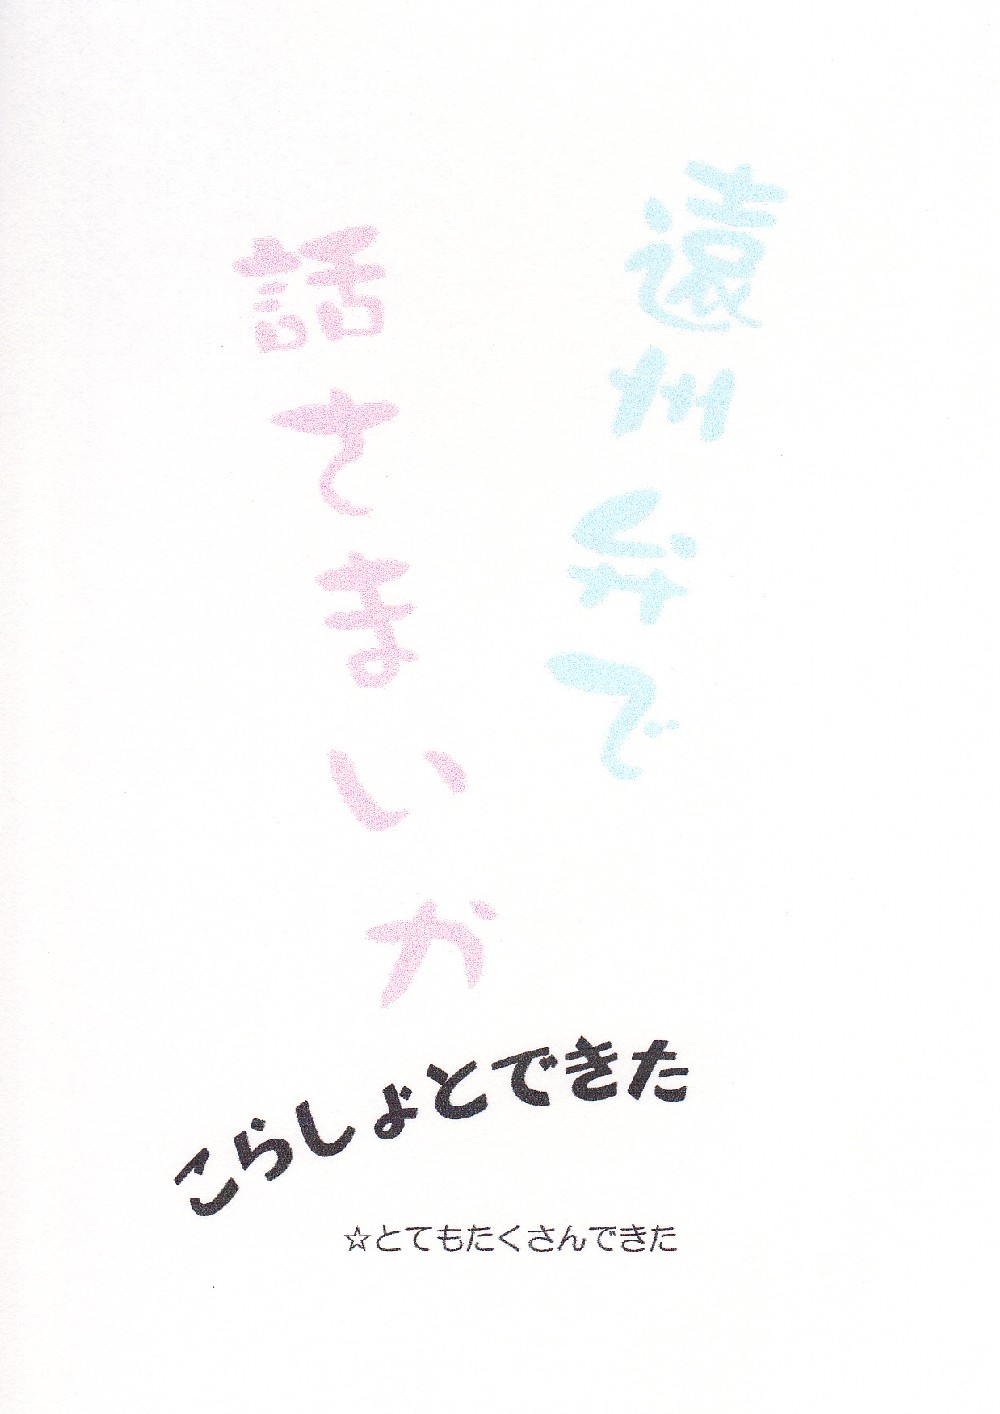 遠州弁で
話てまいか
こらしょとできた
☆とてもたくさんできた